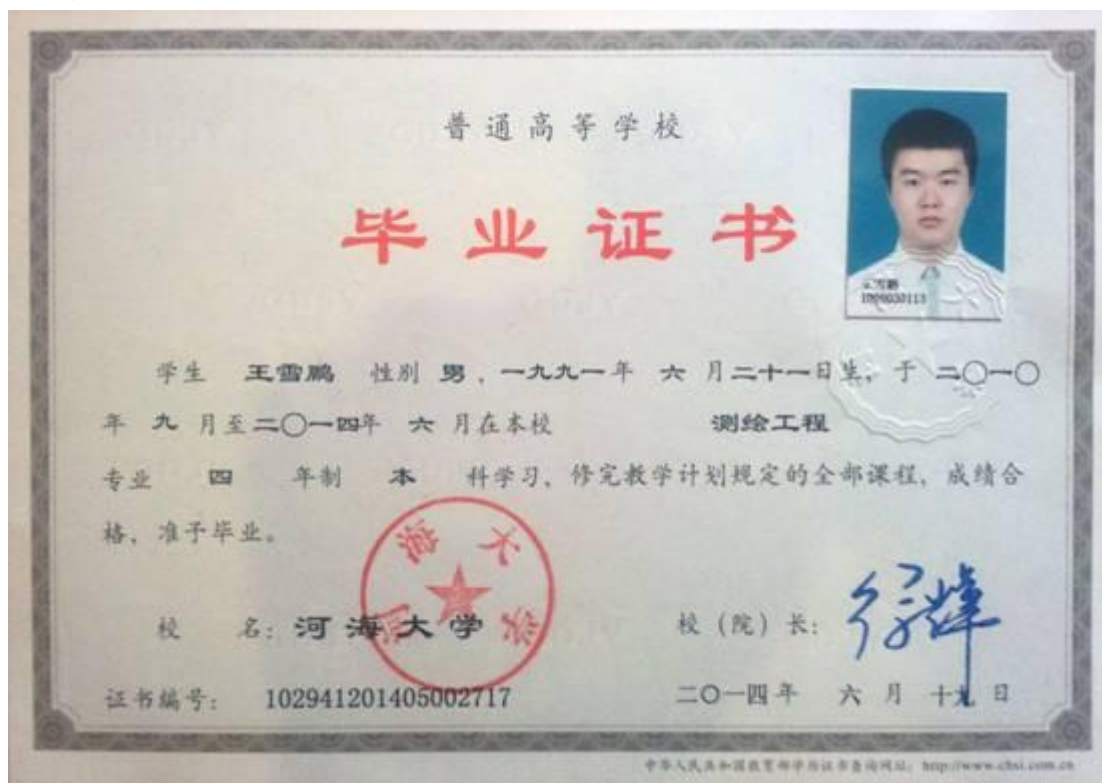 普通高等学校
毕业证书
1006030113
学生 王雪鹏 性别 男，一九九一年 六 月二十一日生，于 二〇一〇
年 九 月至二〇一四年 六 月在本校 测绘工程
专业 四 年制 本 科学习，修完教学计划规定的全部课程，成绩合
格，准予毕业。
河海大学
校 名：河海大学 校（院）长：
证书编号： 102941201405002717 二〇一四年 六 月 十九 日
中华人民共和国教育部学历证书查询网址：http://www.chsi.com.cn